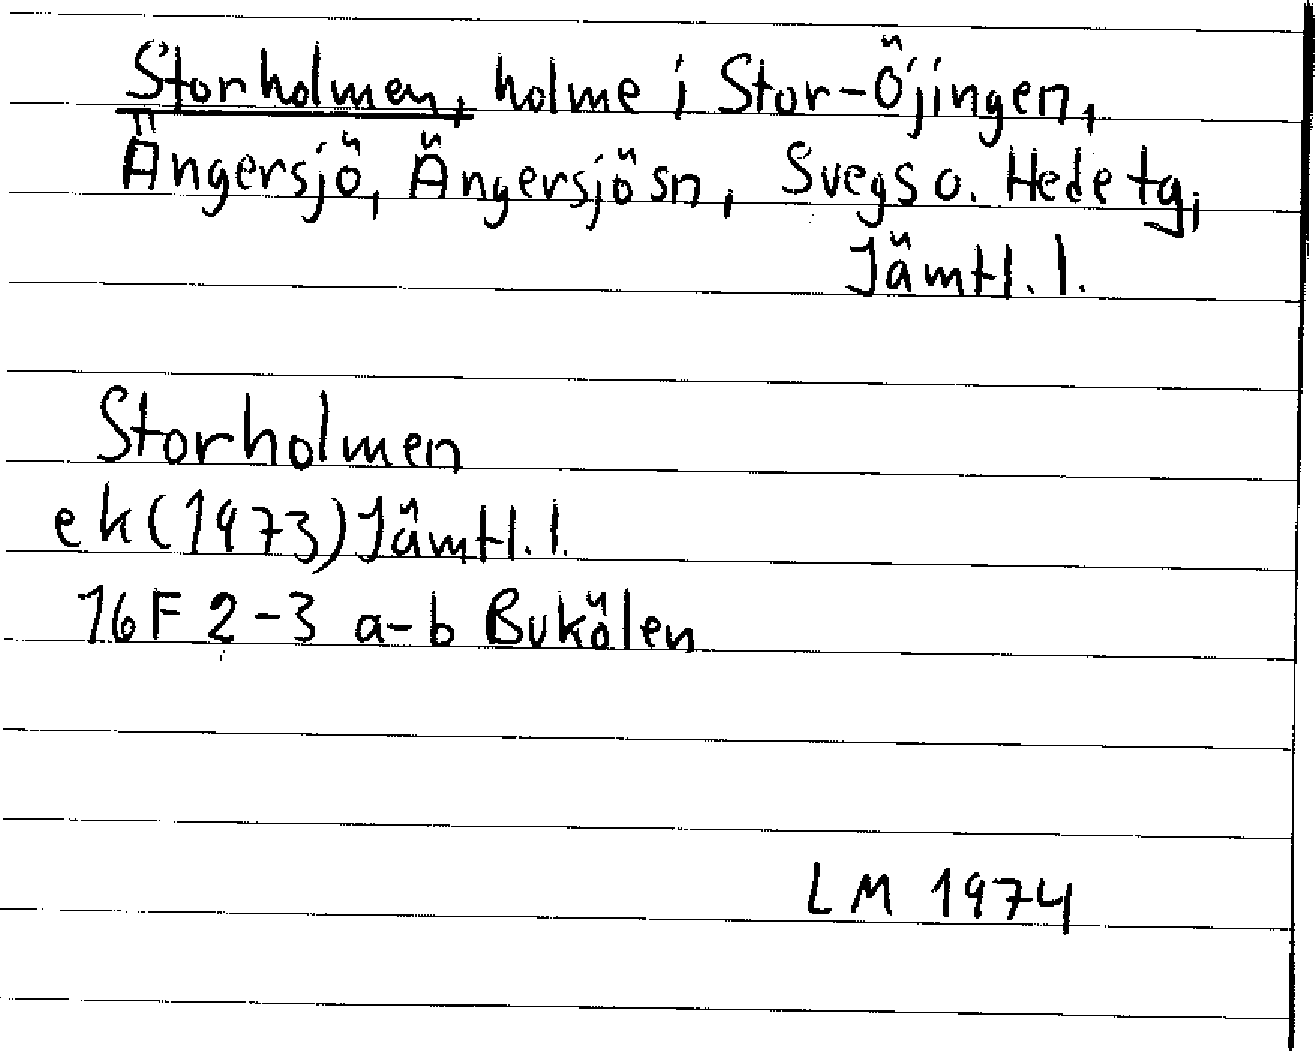 Storholmen, holme i Stor-Öjingen,
Ängersjö, Ängersjö sn, Svegs o. Hede tg,
Jämtl. l.
Storholmen
ek (1973) Jämtl. l.
16 F 2-3 a-b Bukölen
LM 1974